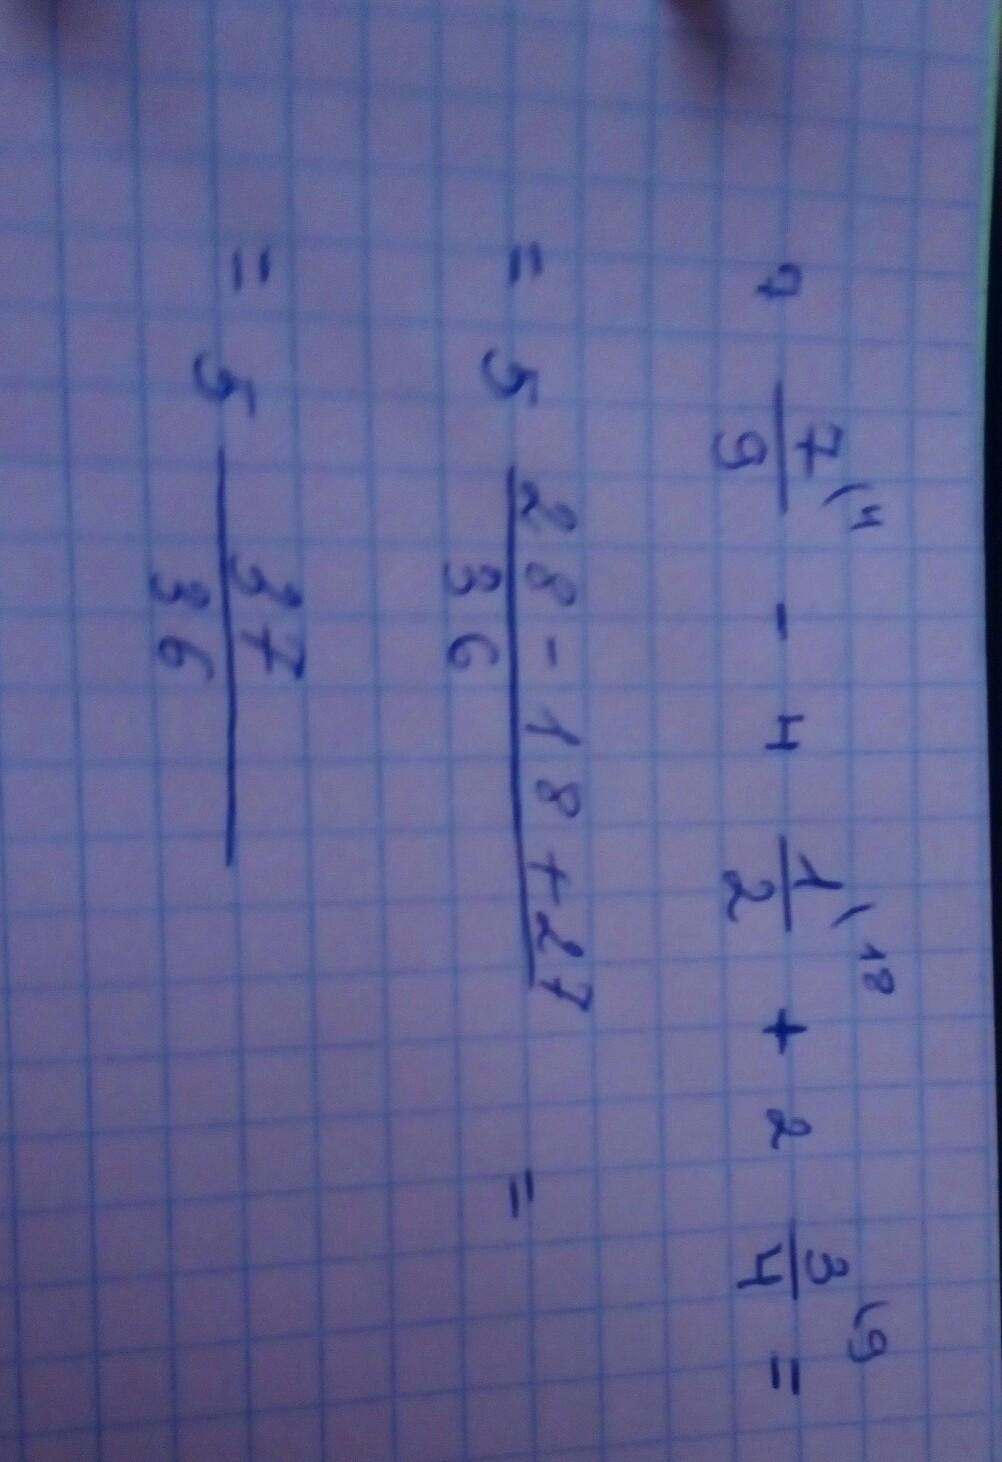 7 7/9 \4 - 4 1/2 \18 + 2 3/4 \9 =
= 5 28-18+27/36 =
= 5 37/36